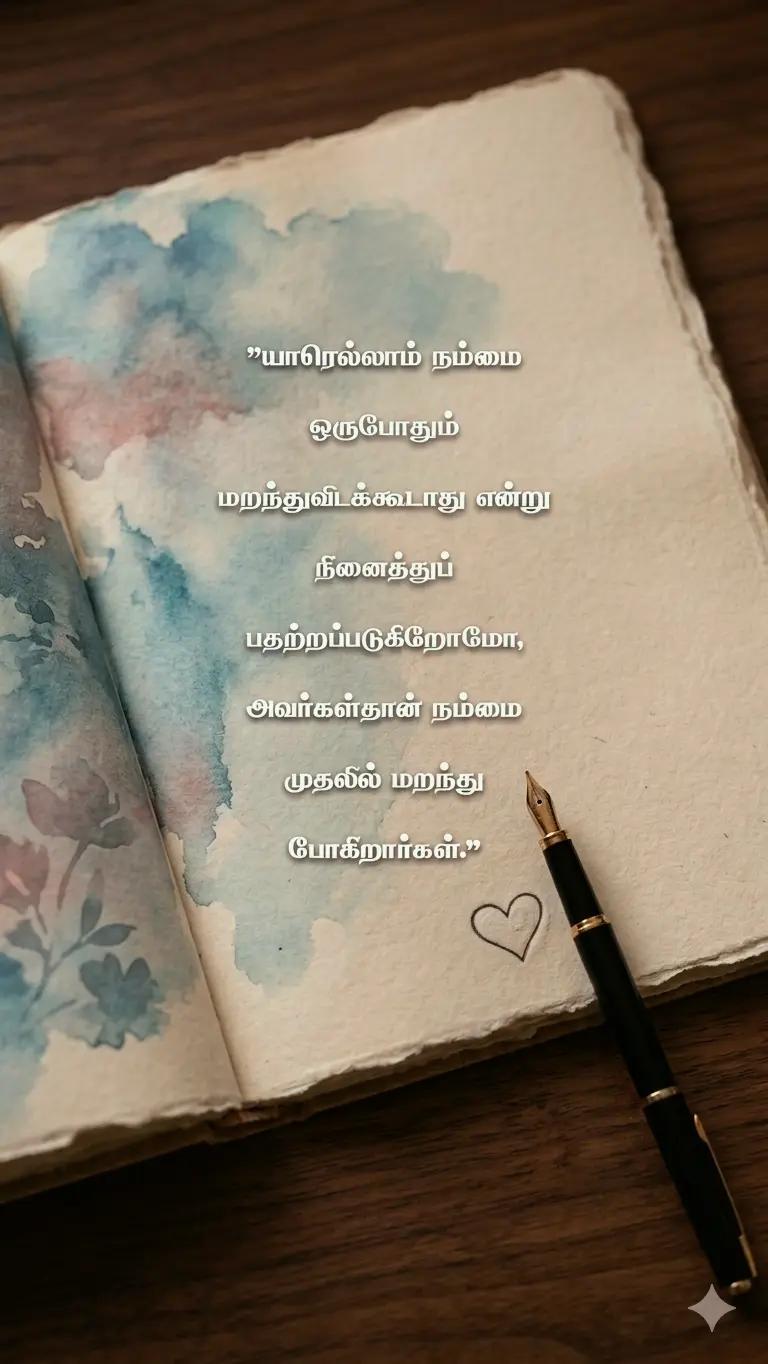 ”யாரெல்லாம் நம்மை
ஒருபோதும்
மறந்துவிடக்கூடாது என்று
நினைத்துப்
பதற்றப்படுகிறோமோ,
அவர்கள்தான் நம்மை
முதலில் மறந்து
போகிறார்கள்.”